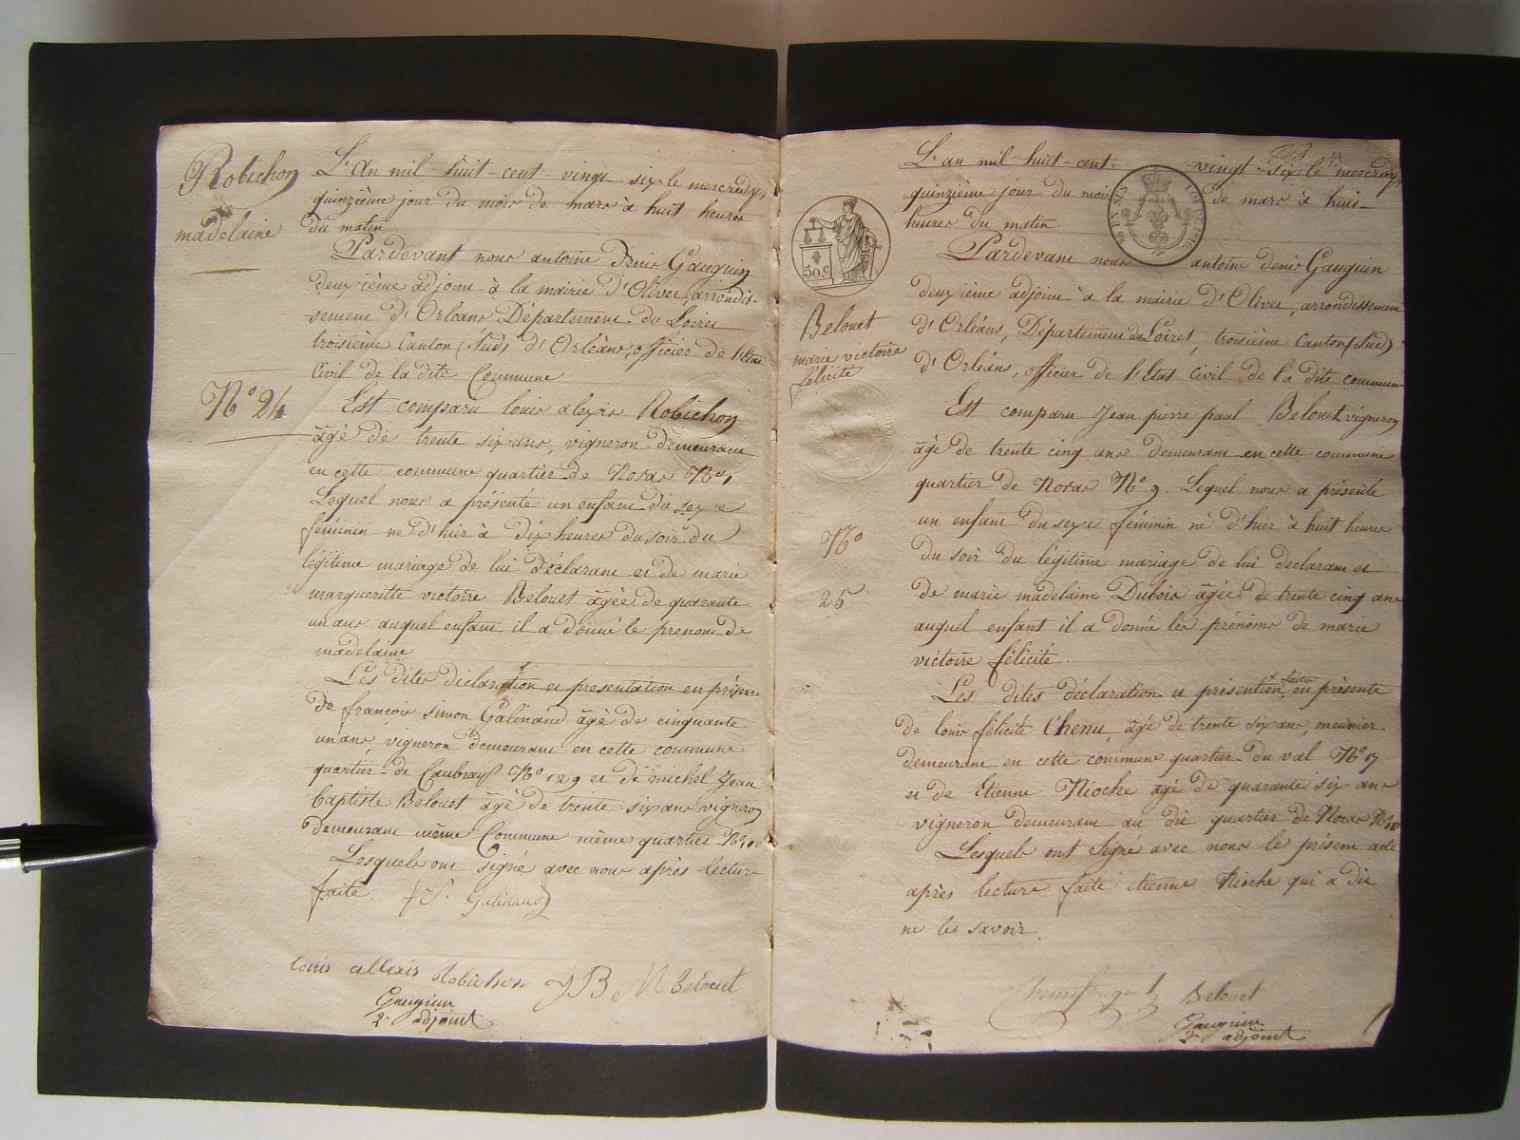 Robichon
madelaine
N.o 24
L'An mil huit-cent-vingt six le mercredy,
quinzième jour du mois de mars à huit heures
du matin
Pardevant nous antoine Denis Gauguin
deuxième adjoint à la mairie d'Olivet, arrondis-
sement d'Orléans Département du Loiret
troisième Canton (Sud) d'Orléans, officier de l'Etat
Civil de la dite Commune
Est comparu louis alexis Robichon
âgé de trente six ans, vigneron demeurant
en cette commune quartier de Noras N.o
Lequel nous a présenté un enfant du sexe
féminin né d'hier à dix heures du soir du
légitime mariage de lui déclarant et de marie
margueritte victoire Belouet âgée de quarante
un ans auquel enfant il a donné le prenom de
madelaine
Les dites déclaration et presentation en présence
de françois simon Galinand âgé de cinquante
un ans, vigneron demeurant en cette commune
quartier de Caubray N.o 129 et de michel Jean
baptiste Belouet âgé de trente six ans vigneron
demeurant même Commune même quartier
Lesquels ont signé avec nous après lecture
faite f S. Galinand
louis allexis Robichon J B M Belouet
Gauguin
2e adjoint
30 c
Belouet
marie victoire
félicité
N.o
25
L'an mil huit cent vingt-six le mercredy
quinzième jour du mois de mars à huit
heures du matin
Pardevant nous antoine denis Gauguin
deuxième adjoint à la mairie d'Olivet, arrondissement
d'Orléans, Département du Loiret, troisième Canton (Sud)
d'Orléans, officier de l'Etat Civil de la dite commune
Est comparu Jean pierre paul Belouet vigneron
âgé de trente cinq ans demeurant en cette commune
quartier de Noras N.o 9. Lequel nous a présenté
un enfant du sexe féminin né d'hier à huit heures
du soir du légitime mariage de lui déclarant et
de marie madelaine Dubois âgée de trente cinq ans
auquel enfant il a donné les prénoms de marie
victoire félicité
Les dites déclaration et présention faites en présente
de louis félicité Chenu, âgé de trente six ans, meunier
demeurant en cette commune quartier du val N.o 17
et de Etienne Nioche âgé de quarante six ans
vigneron demeurant au dit quartier de Noras
Lesquels ont signé avec nous le présent acte
après lecture faite etienne Nioche qui a dit
ne les savoir.
Belouet
Gauguin
2e adjoint